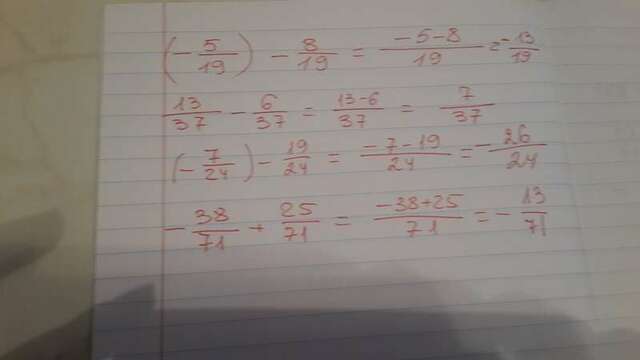 (-5/19) - 8/19 = -5-8/19 = -13/19
13/37 - 6/37 = 13-6/37 = 7/37
(-7/24) - 19/24 = -7-19/24 = -26/24
-38/71 + 25/71 = -38+25/71 = -13/71